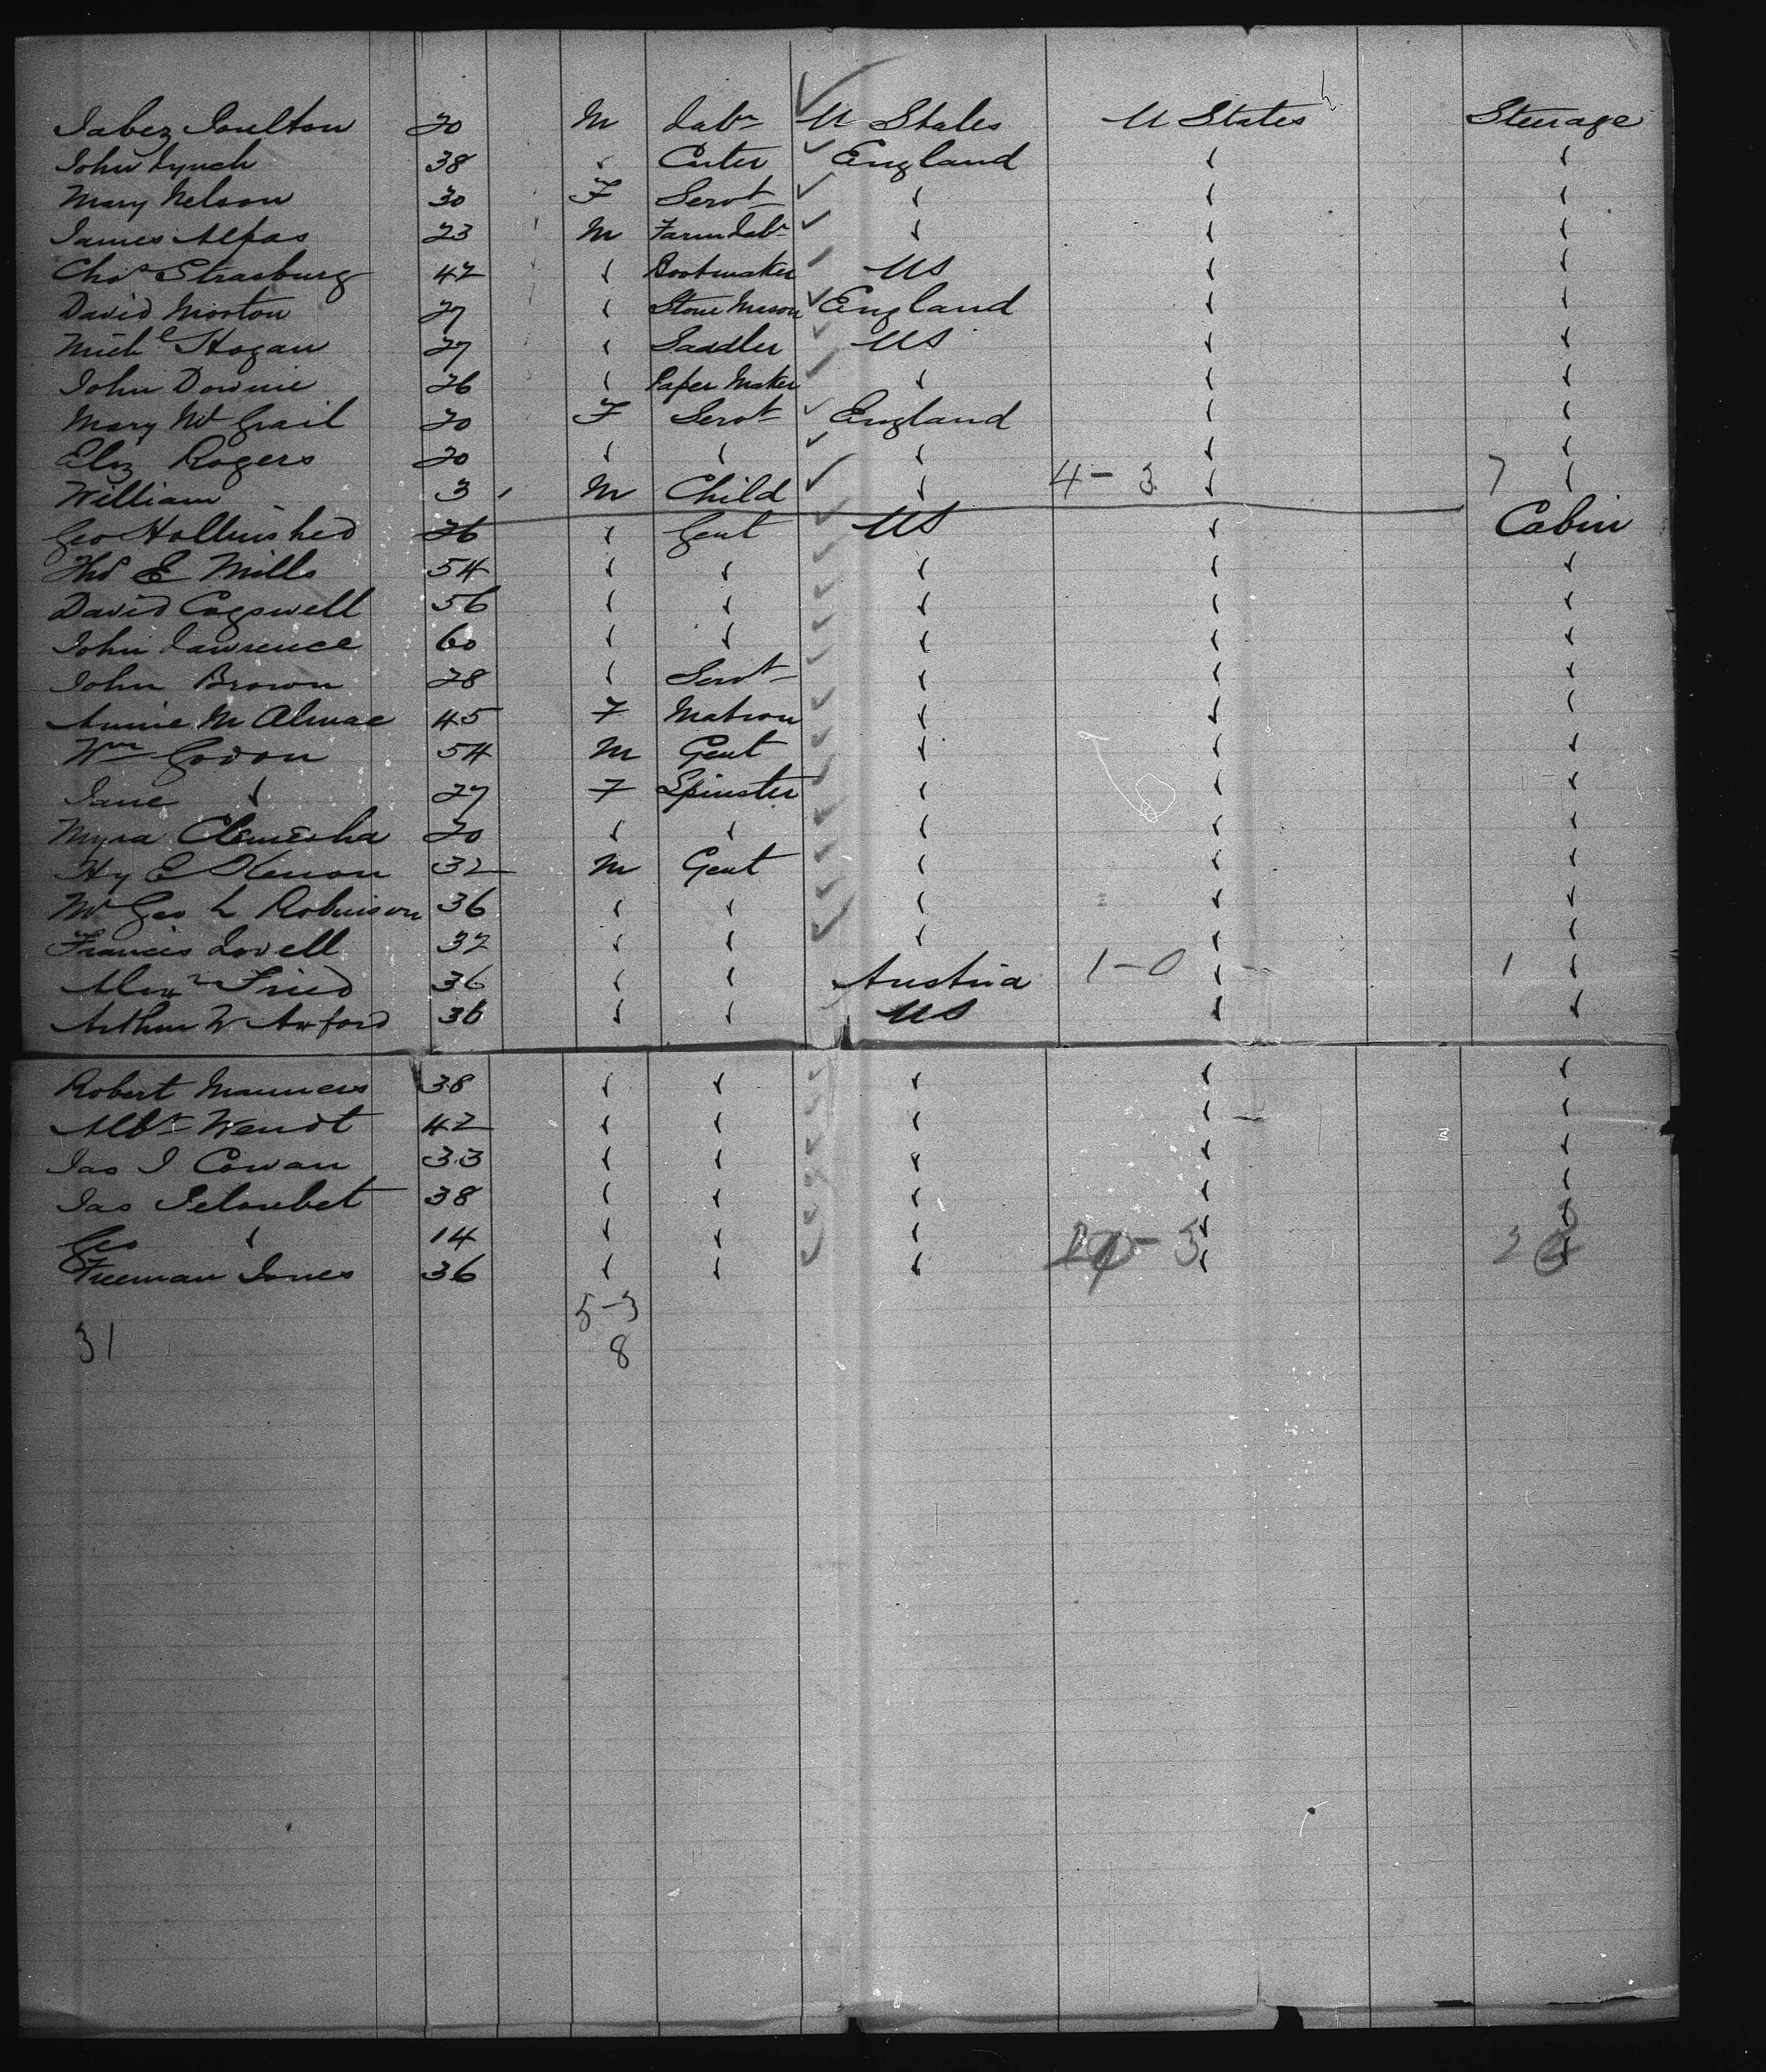 Jabez Joulton 20 M Labr U States U States Steerage
John Lynch 38 " Carter England " "
Mary Nelson 30 F Servt " " "
James Alpas 23 M Farm Labr " " "
Chas Strasburg 42 " Bootmaker US " "
David Morton 27 " Stone Mason England " "
Michl Hogan 27 " Saddler US " "
John Downie 26 " Paper Maker " " "
Mary Mc Grail 20 F Servt England " "
Eliz Rogers 20 " " " " "
William 3 M Child " 4-3 " 7 "
Geo Hollinshed 26 " Gent US " Cabin
Thos E Mills 54 " " " " "
David Cogswell 56 " " " " "
John Lawrence 60 " " " " "
John Brown 28 " Servt " " "
Annie McAlmae 45 F Matron " " "
Wm Godon 54 M Gent " " "
Jane " 27 F Spinster " " "
Myra Clemesha 20 " " " " "
Hy E Kenon 32 M Gent " " "
Mr Geo L Robinson 36 " " " " "
Francis Lovell 37 " " " " "
Alexr Fried 36 " " Austria 1-0 " 1 "
Arthur W Axford 36 " " US " "
Robert Manners 38 " " " " "
Albt Wendt 42 " " " " "
Jas J Cowan 33 " " " " "
Jas Peloubet 38 " " " " "
Geo " 14 " " " " "
Freeman Jones 36 " " " " "
5-3
31 8